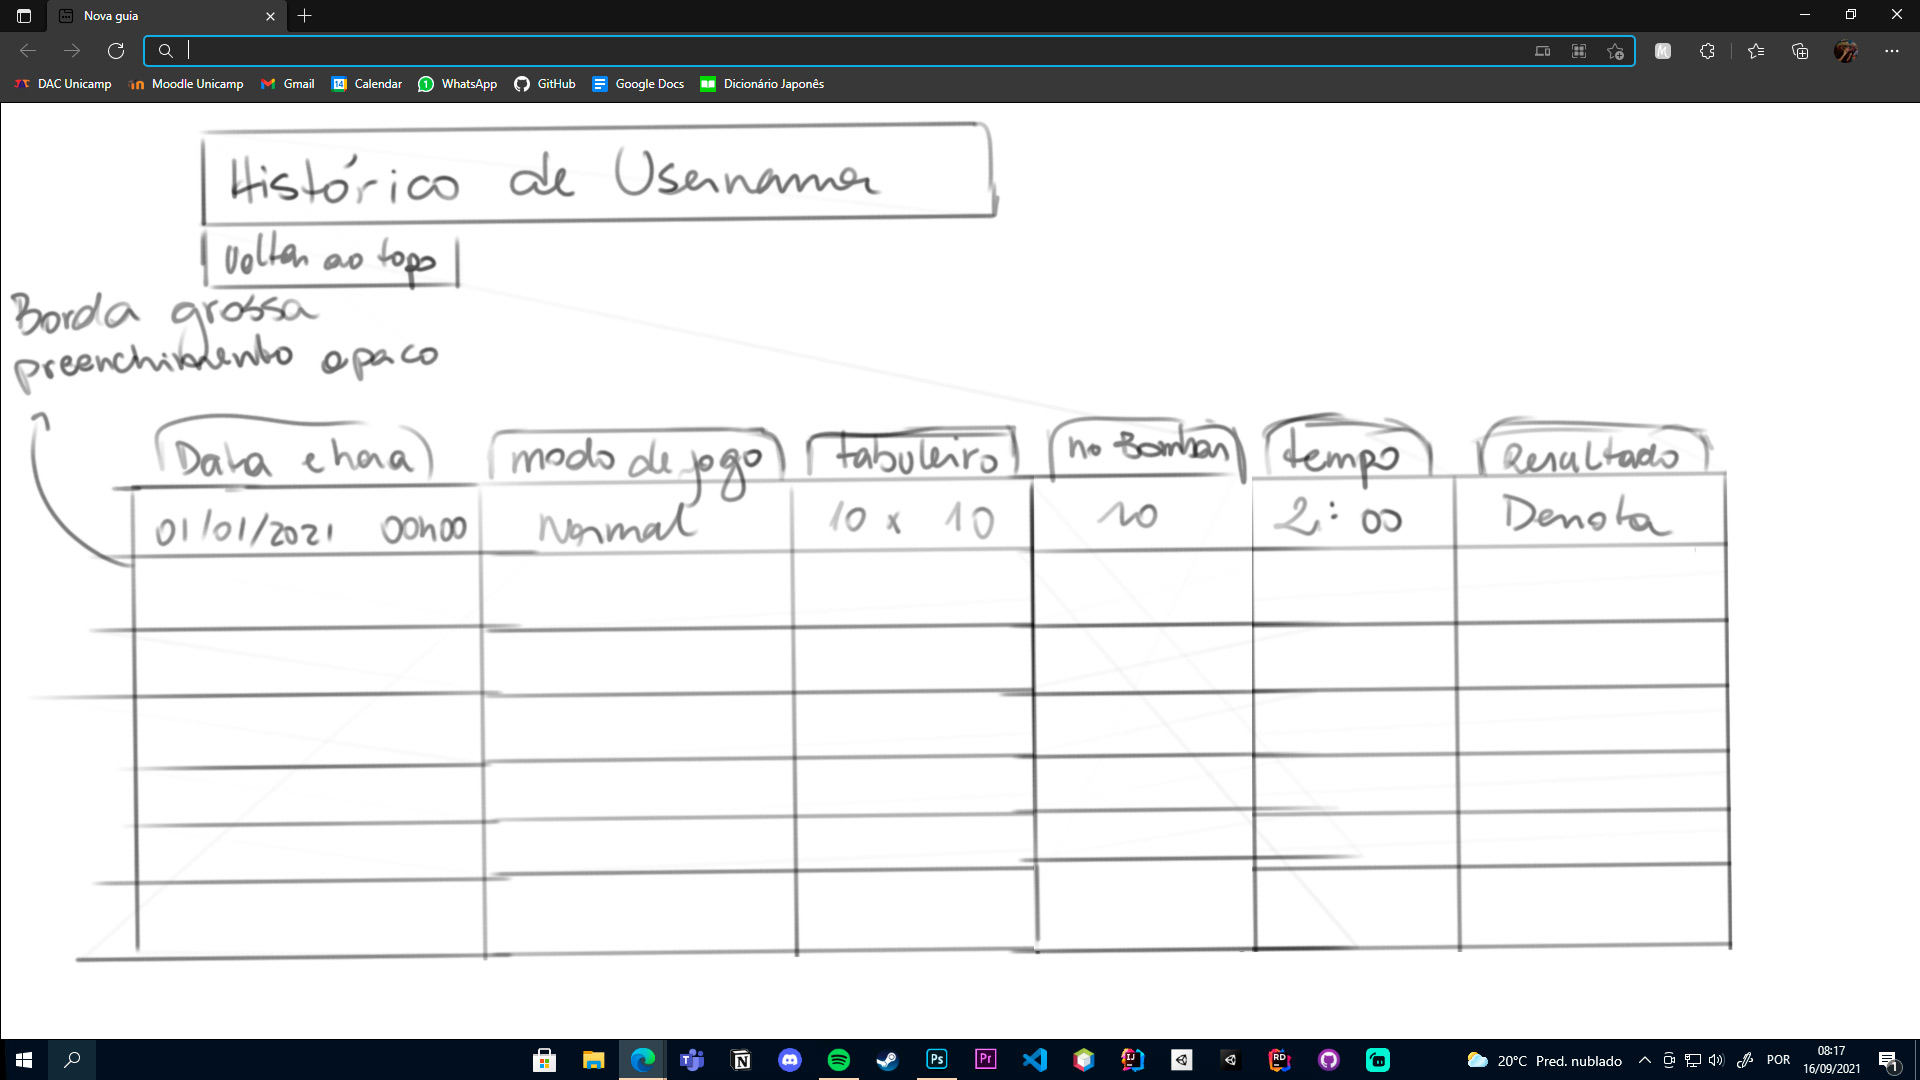 Nova guia
DAC Unicamp Moodle Unicamp Gmail Calendar WhatsApp GitHub Google Docs Dicionário Japonês
Histórico de Username
Voltar ao topo
Borda grossa
preenchimento opaco
Data e hora modo de jogo tabuleiro no Bombas tempo Resultado
01/01/2021 00h00 Normal 10 x 10 10 2:00 Derrota
20°C Pred. nublado POR 08:17
16/09/2021